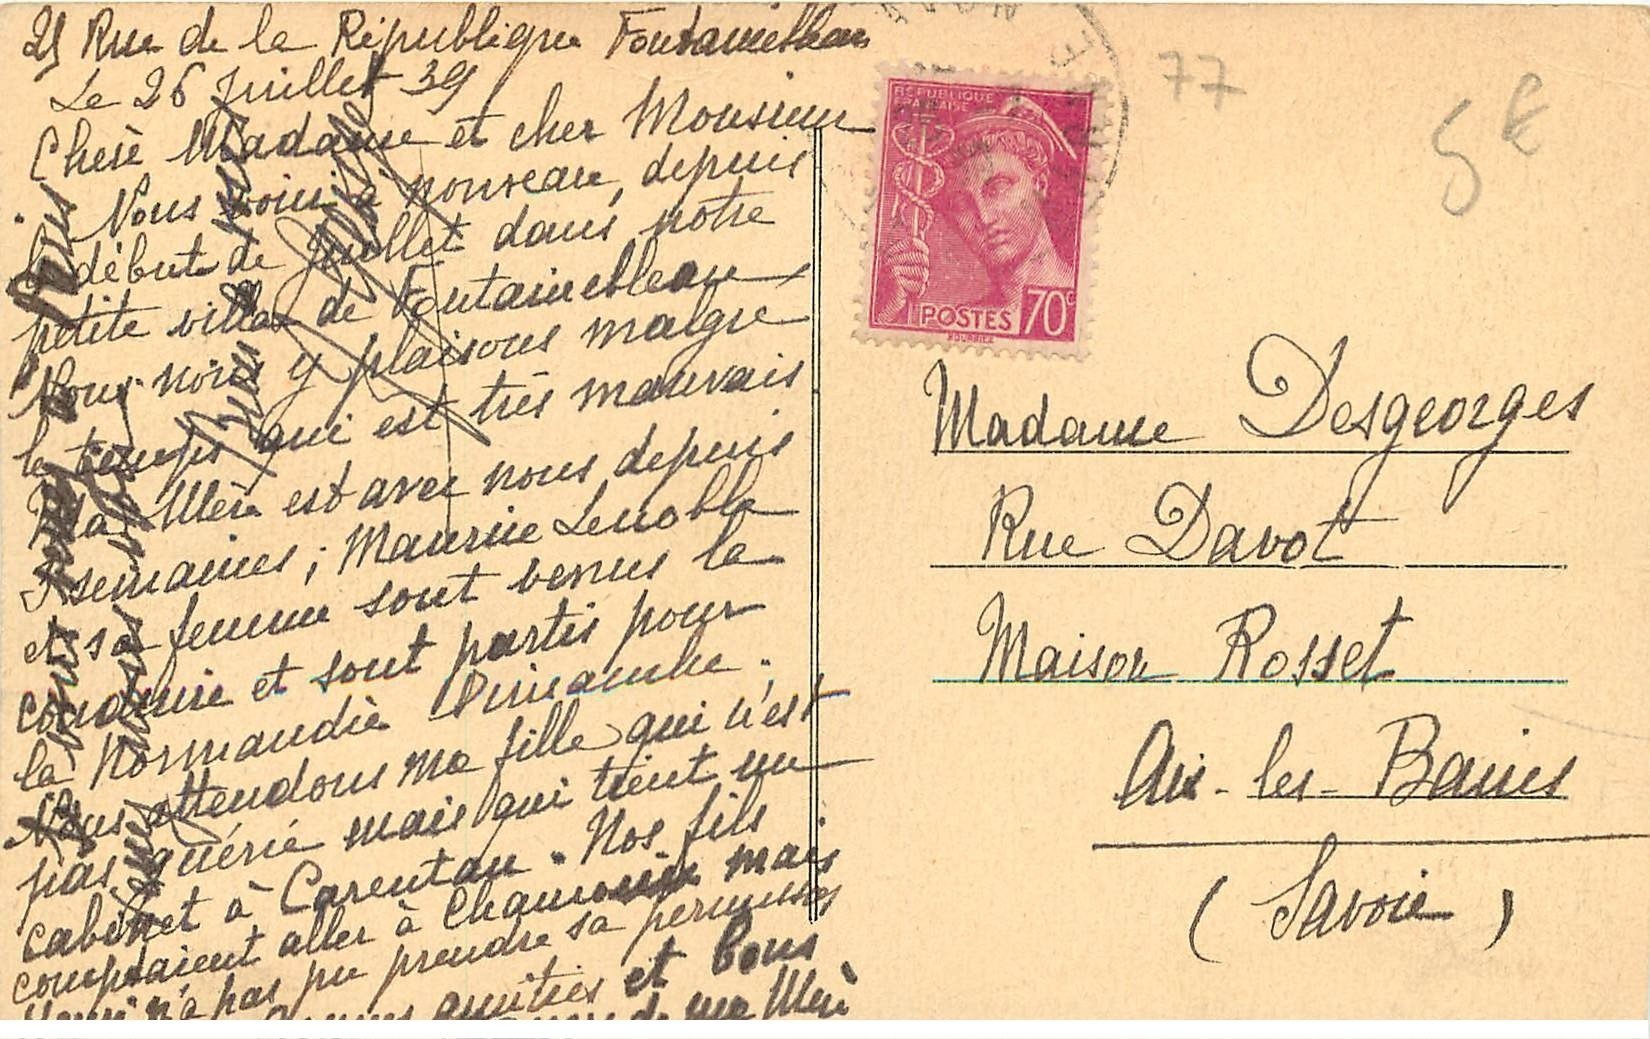 21 Rue de la République Fontainebleau
Le 26 Juillet 39
Chère Madame et cher Monsieur
Nous voici à nouveau, depuis
le début de Juillet dans notre
petite villa de Fontainebleau
Nous nous y plaisons malgré
le temps qui est très mauvais
Ma Mère est avec nous depuis
3 semaines ; Maurice Lenoble
et sa femme sont venus la
conduire et sont partis pour
la Normandie Dimanche.
Nous attendons ma fille qui n'est
pas guérie mais qui tient un
cabinet à Carentan. Nos fils
comptaient aller à Chamonix mais
Henri n'a pas pu prendre sa permission
amitiés et bons
de ma Mère
RÉPUBLIQUE
FRANÇAISE
POSTES 70c
77
5 €
Madame Desgeorges
Rue Davot
Maison Rosset
Aix-les-Bains
(Savoie)